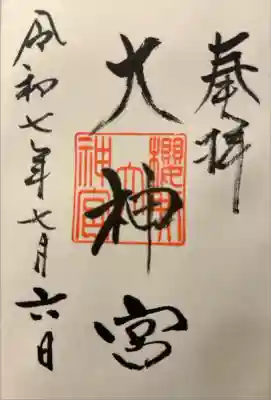 奉拝
大神宮
櫻
大
神宮
令和七年七月六日